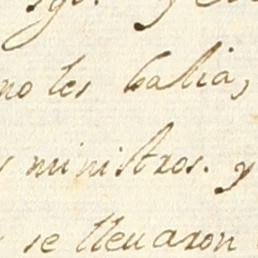 no les balia,
ministros. y
se lleuaron